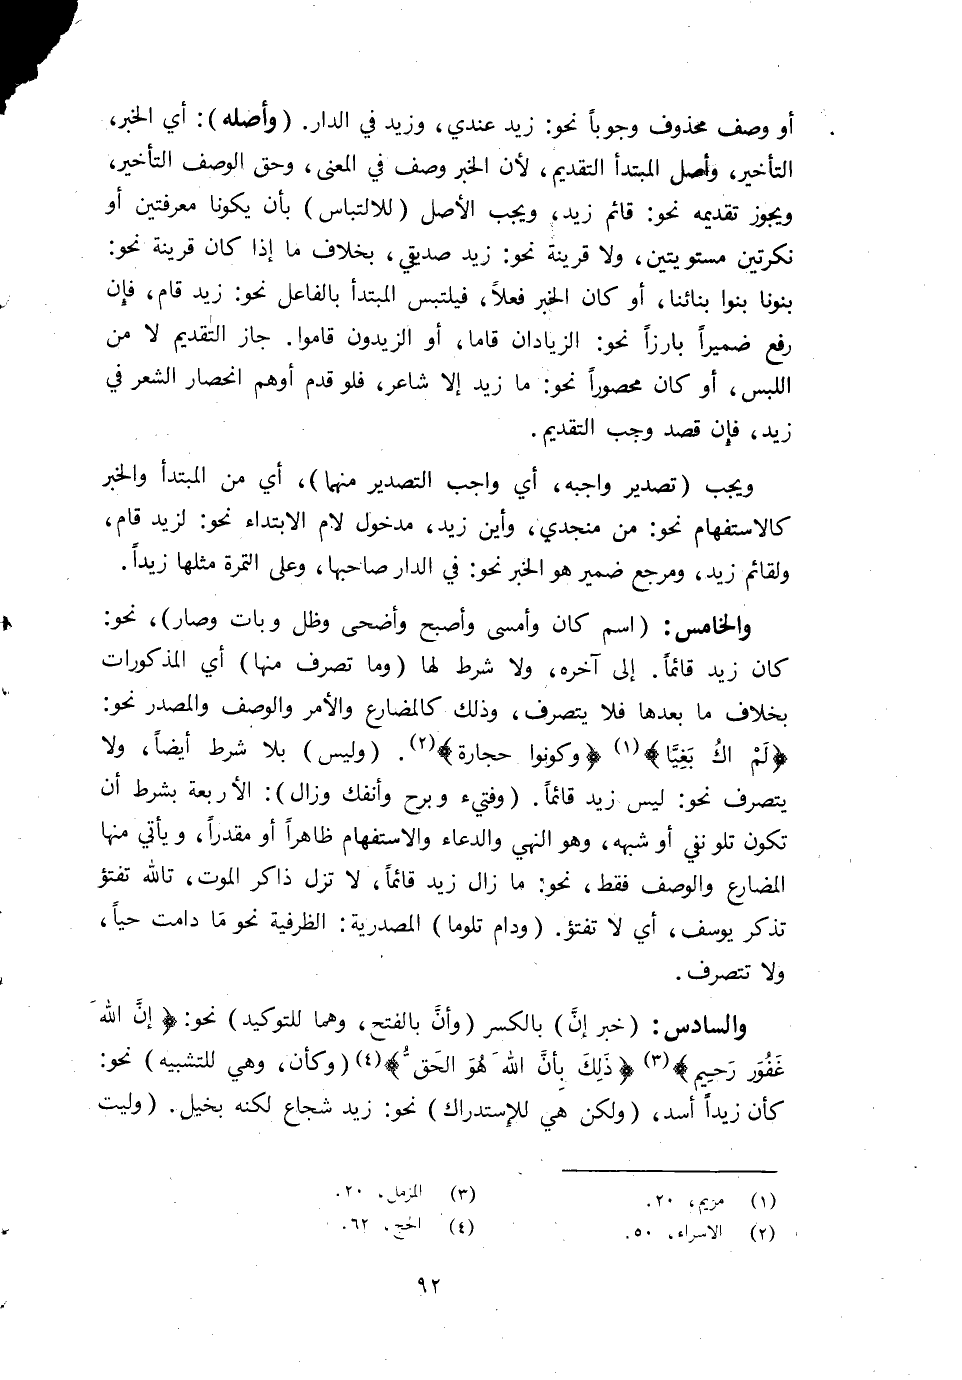 أو وصف محذوف وجوباً نحو: زيد عندي، وزيد في الدار. (وأصله): أي الخبر،
التأخير، وأصل المبتدأ التقديم، لأن الخبر وصف في المعنى، وحق الوصف التأخير،
ويجوز تقديمه نحو: قائم زيد، ويجب الأصل (للالتباس) بأن يكونا معرفتين أو
نكرتين مستويتين، ولا قرينة نحو: زيد صديقي، بخلاف ما إذا كان قرينة نحو:
بنونا بنوا بنائنا، أو كان الخبر فعلاً، فيلتبس المبتدأ بالفاعل نحو: زيد قام، فإن
رفع ضميراً بارزاً نحو: الزيادان قاما، أو الزيدون قاموا. جاز التقديم لا من
اللبس، أو كان محصوراً نحو: ما زيد إلا شاعر، فلو قدم أوهم انحصار الشعر في
زيد، فإن قصد وجب التقديم.
ويجب (تصدير واجبه، أي واجب التصدير منها)، أي من المبتدأ والخبر
كالاستفهام نحو: من منجدي، وأين زيد، مدخول لام الابتداء نحو: لزيد قام،
ولقائم زيد، ومرجع ضمير هو الخبر نحو: في الدار صاحبها، وعلى التمرة مثلها زيداً.
والخامس: (اسم كان وأمسى وأصبح وأضحى وظل وبات وصار)، نحو:
كان زيد قائماً. إلى آخره، ولا شرط لها (وما تصرف منها) أي المذكورات
بخلاف ما بعدها فلا يتصرف، وذلك كالمضارع والأمر والوصف والمصدر نحو:
﴿لَمْ اكُ بَغِيًّا﴾(١) ﴿وكونوا حجارة﴾(٢). (وليس) بلا شرط أيضاً، ولا
يتصرف نحو: ليس زيد قائماً. (وفتيء وبرح وأنفك وزال): الأربعة بشرط أن
تكون تلو نفي أو شبهه، وهو النهي والدعاء والاستفهام ظاهراً أو مقدراً، ويأتي منها
المضارع والوصف فقط، نحو: ما زال زيد قائماً، لا تزل ذاكر الموت، تالله تفتؤ
تذكر يوسف، أي لا تفتؤ. (ودام تلوما) المصدرية: الظرفية نحو مَا دامت حياً،
ولا تتصرف.
والسادس: (خبر إنَّ) بالكسر (وأنَّ بالفتح، وهما للتوكيد) نحو: ﴿إنَّ اللهَ
غَفُوَر رَحِيم﴾(٣) ﴿ذَلِكَ بِأنَّ اللهَ هُوَ الحَقُّ﴾(٤) (وكأن، وهي للتشبيه) نحو:
كأن زيداً أسد، (ولكن هي للإستدراك) نحو: زيد شجاع لكنه بخيل. (وليت
(١) مريم، ٢٠.
(٢) الاسراء، ٥٠.
(٣) المزمل، ٢٠.
(٤) الحج، ٦٢.
٩٢